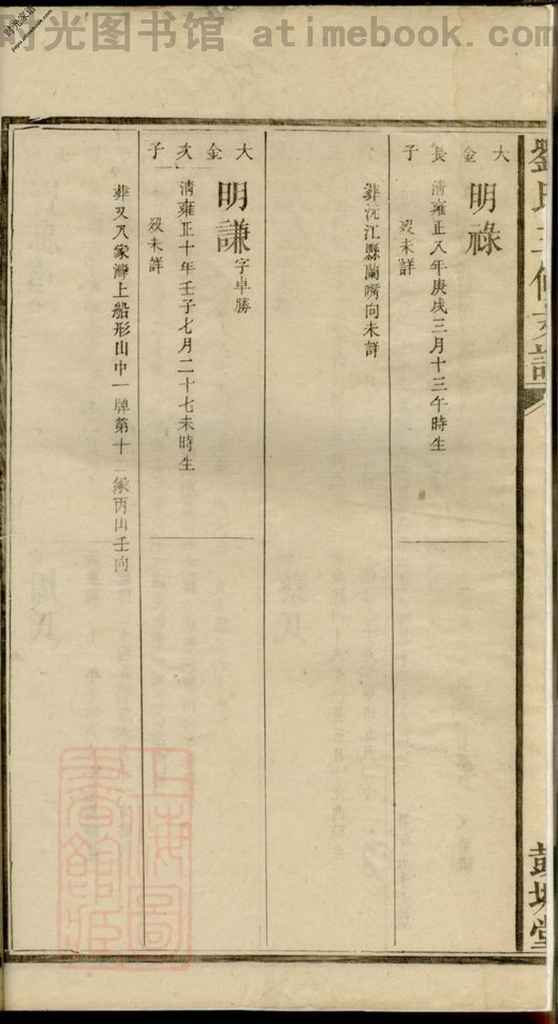 时光图书馆 atimebook.com
大金長子
明祿
清雍正八年庚戌三月十三午時生
歿未詳
葬沅江縣蘭嘴向未詳
大金次子
明謙字卓勝
清雍正十年壬子七月二十七未時生
歿未詳
葬叉八家灣上船形山中一牌第十二塚丙山壬向
上海圖書館藏